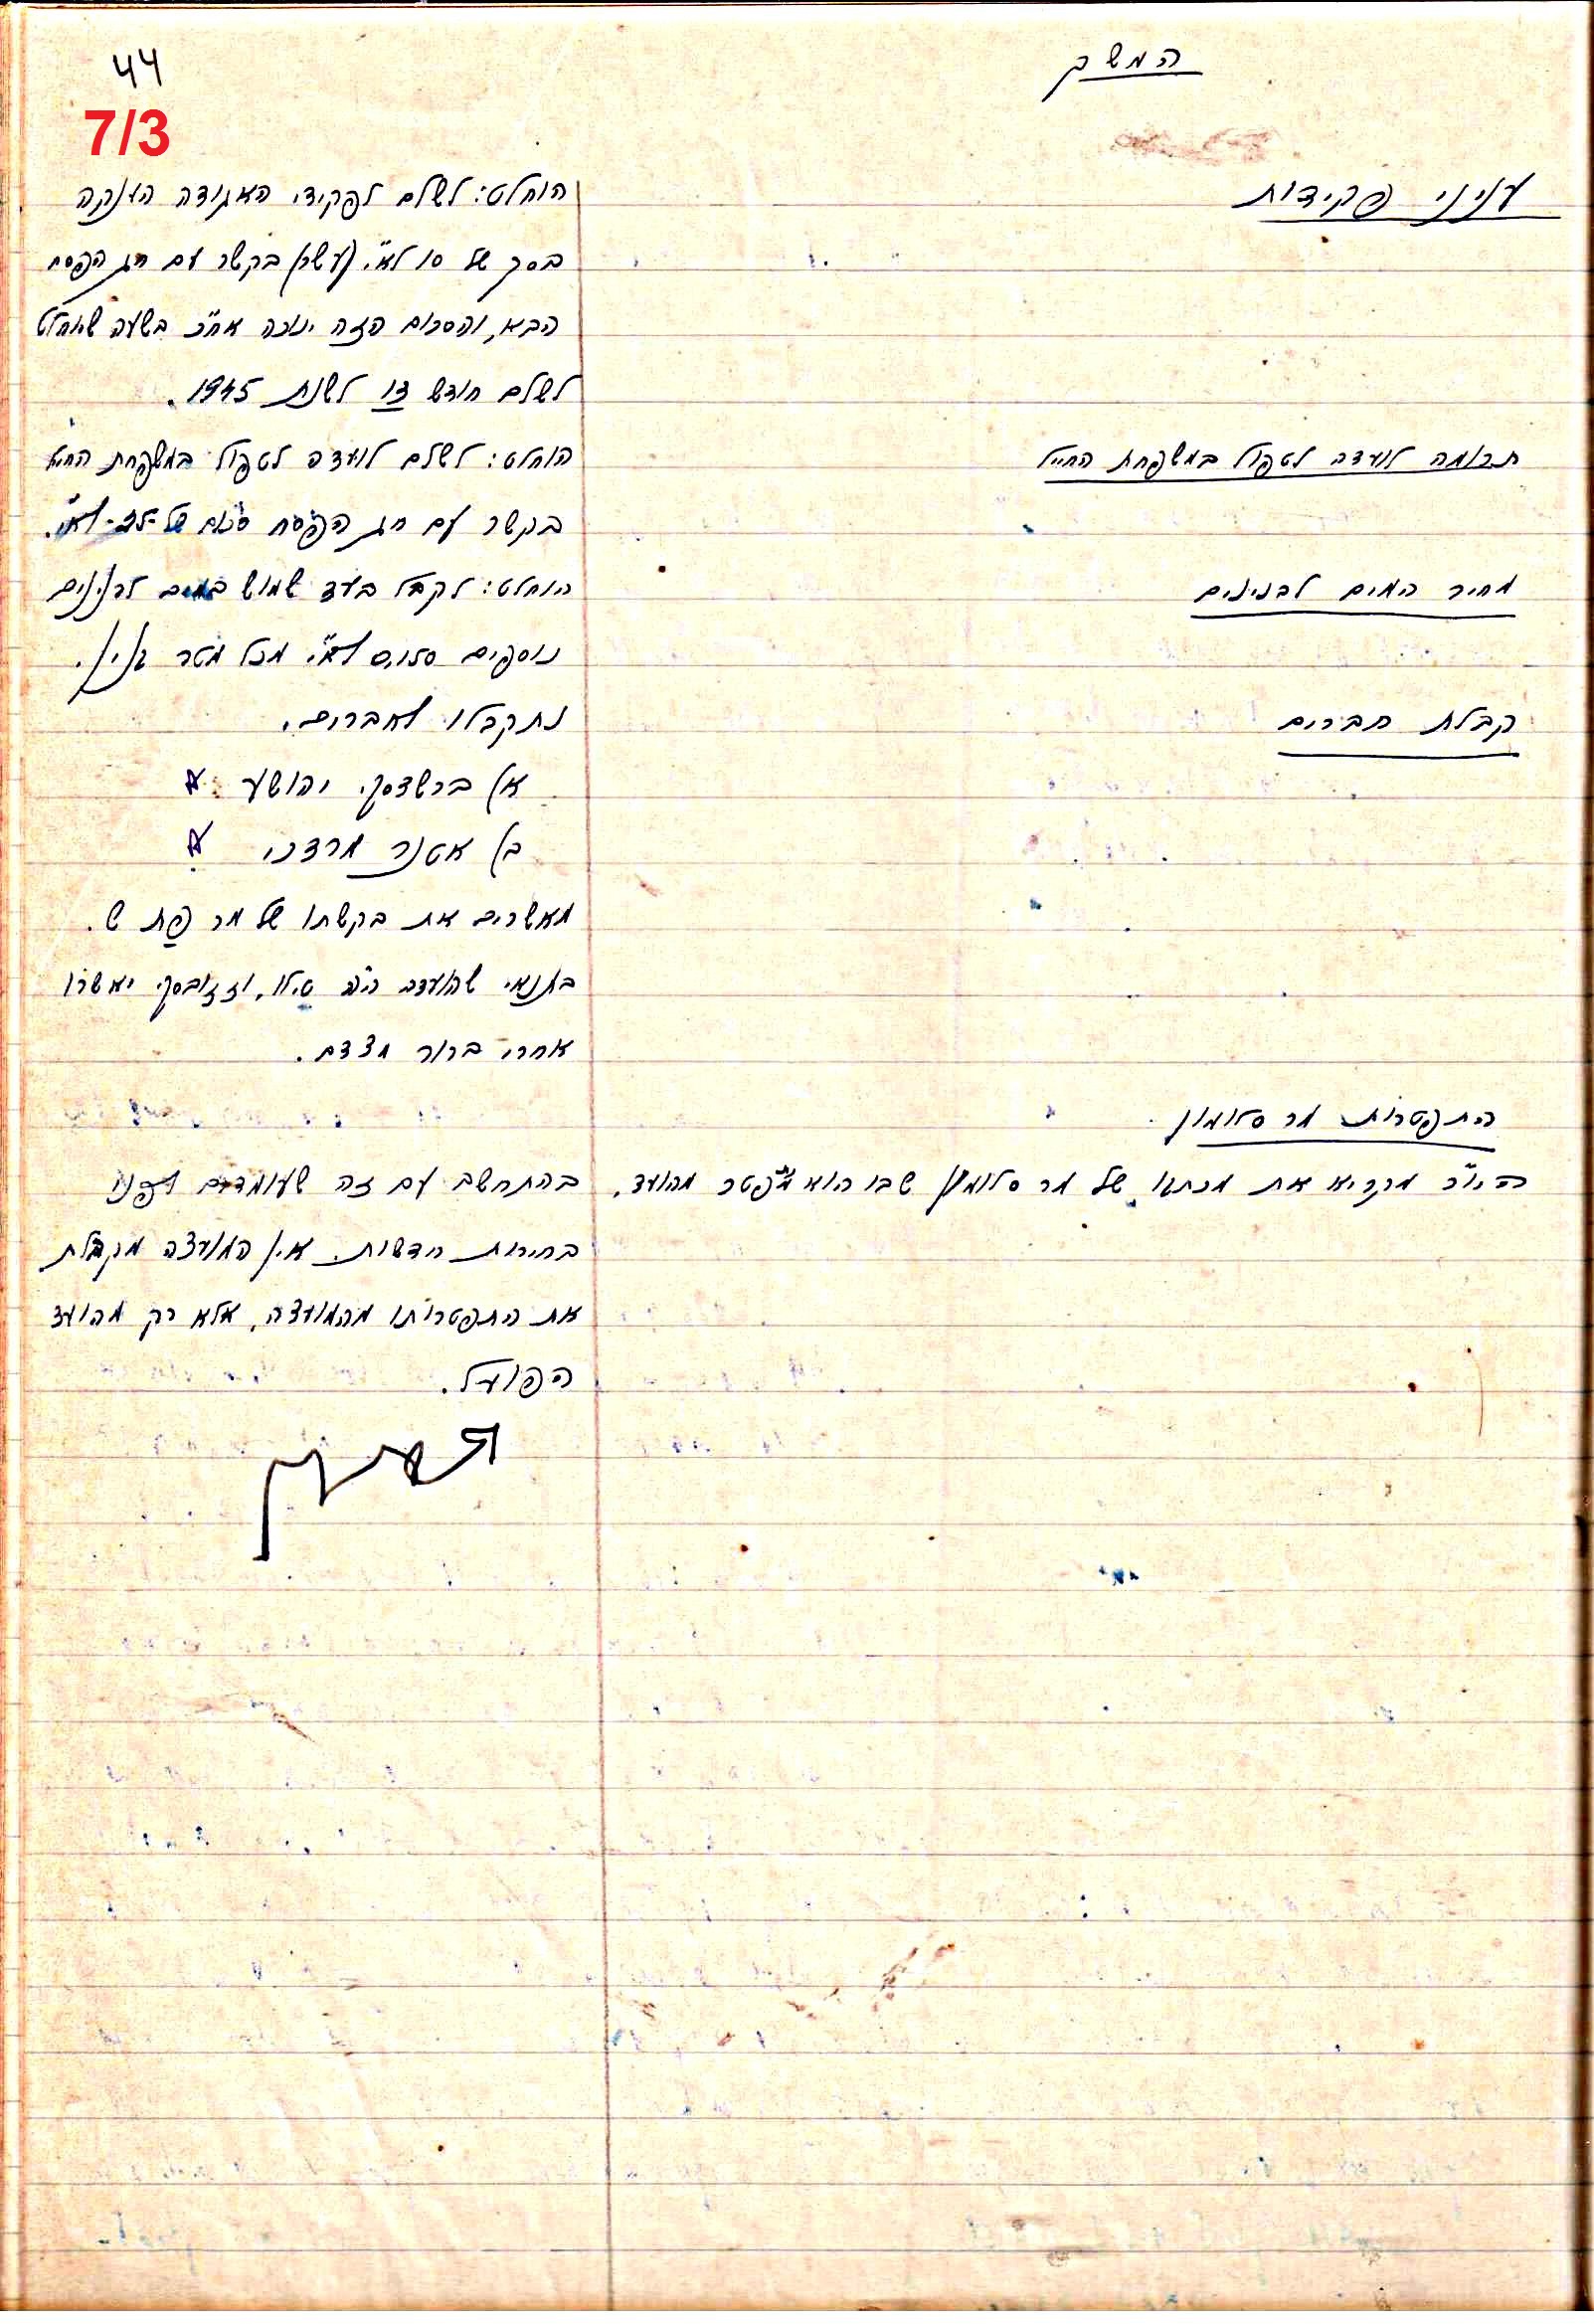 המשך
44
7/3
עניני פקידות
הוחלט: לשלם לפקידי האגודה הענקה
בסך של 10 לא"י. (עשר) בקשר עם חג הפסח
הבא, והסכום הזה ינוכה אח"כ בשעה שיוחלט
לשלם חודש 13 לשנת 1945.
תרומה לועדה לטפול במשפחת החייל
הוחלט: לשלם לועדה לטפול במשפחת החייל
בקשר עם חג הפסח סכום של לא"י.
מחיר המים לבנינים
הוחלט: לקבל בעד שמוש במים לבנינים
נוספים 0,150 לא"י מכל מטר בנין.
קבלת חברים
נתקבלו לחברים.
א) ברשדסקי יהושע
ב) אטנר מרדכי
מאשרים את בקשתו של מר פת ש.
בתנאי שהועדה ה"ה וזזובסקי יאשרו
אחרי ברור מצדם.
התפטרות מר סלומון
היו"ר מקריא את מכתבו של מר סלומון שבו הוא מתפטר מהועד.
בהתחשב עם זה שעומדים לפנינו
בחירות חדשות. אין המועצה מקבלת
את התפטרותו מהמועצה, אלא רק מהועד
הפועל.